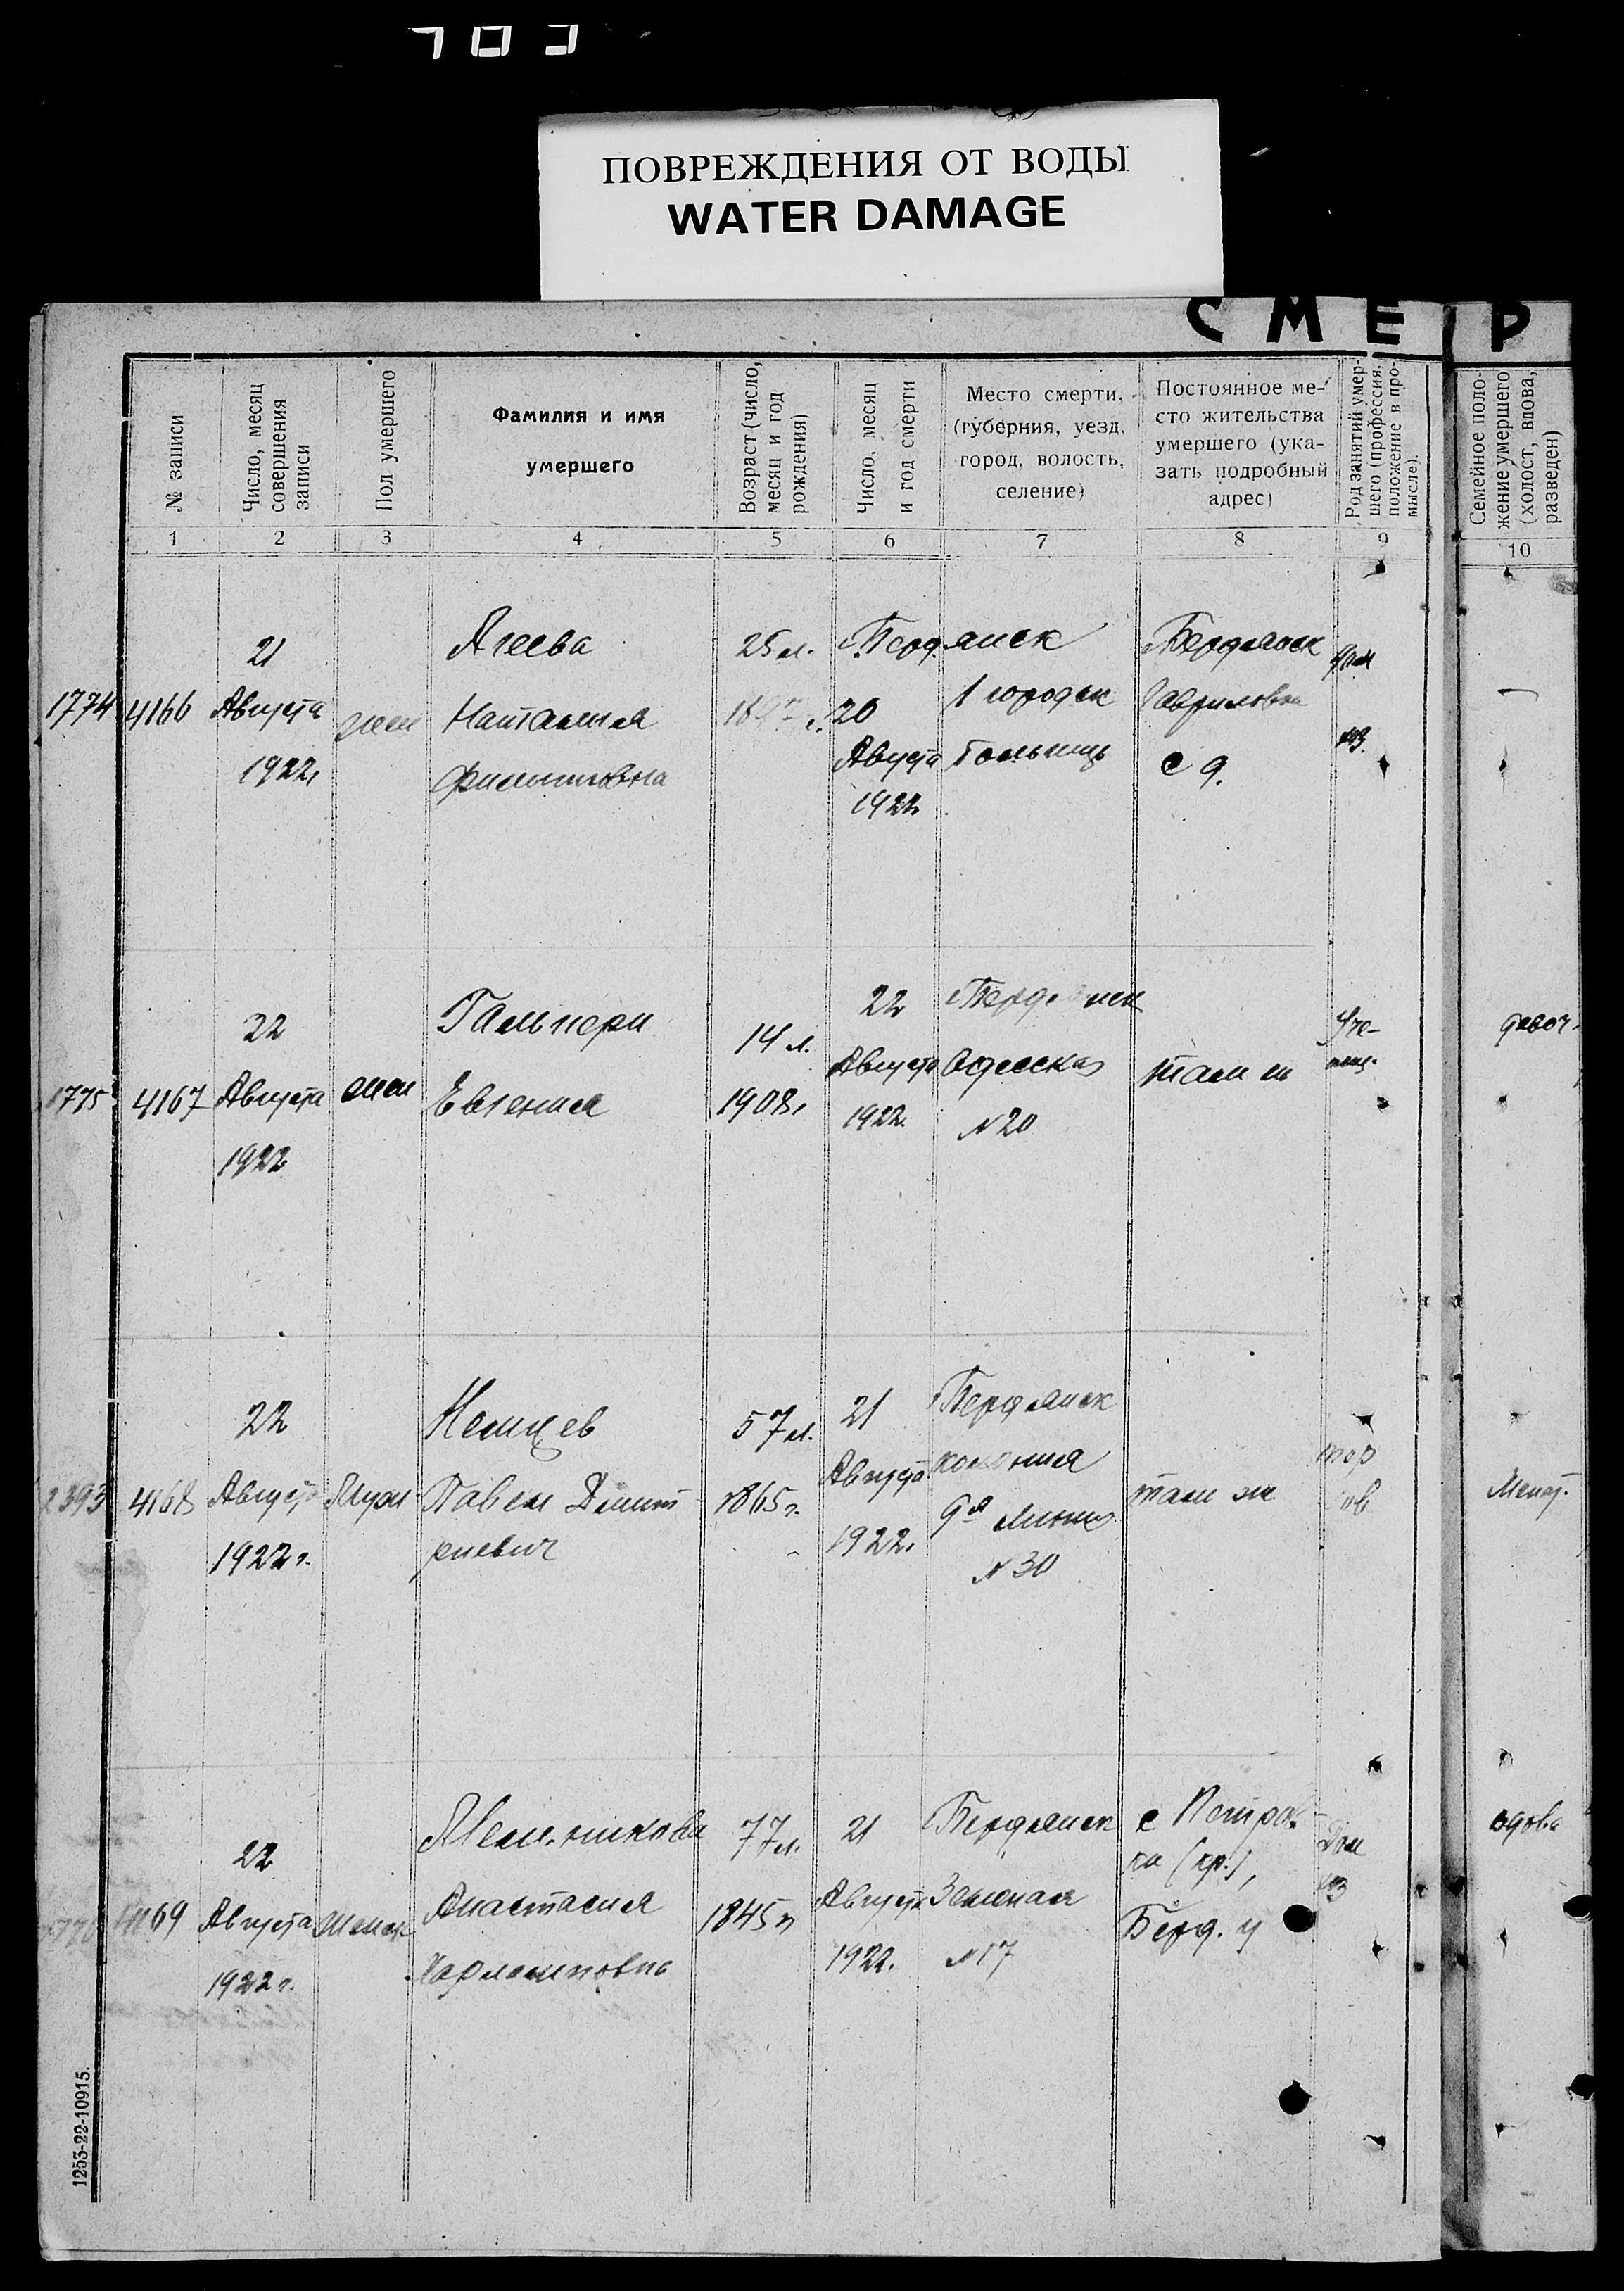 703
ПОВРЕЖДЕНИЯ ОТ ВОДЫ
WATER DAMAGE
СМЕР
№ записи
Число, месяц
совершения
записи
Пол умершего
Фамилия и имя
умершего
Возраст (число,
месяц и год
рождения)
Число, месяц
и год смерти
Место смерти,
(губерния, уезд,
город, волость,
селение)
Постоянное ме-
сто жительства
умершего (ука-
зать подробный
адрес)
Род занятий умер-
шего (профессия,
положение в про-
мысле).
Семейное поло-
жение умершего
(холост, вдова,
разведен)
1 2 3 4 5 6 7 8 9 10
1774
4166
21
Августа
1922
жен
Агеева
Наталия
Филипповна
25 л.
20
Августа
1922
Бердянск
1 городск
больниц
Бердянск
с д.
1775
4167
22
Августа
1922
жен
Гальперн
Евгения
14 л.
1908
22
Августа
1922
Бердянск
Одесская
№ 20
там ж
Уче-
ниц.
девоч.
2393
4168
22
Августа
1922 г.
Муж
Немцев
Павел Дмит
риевич
57 л.
1865 г.
21
Августа
1922.
Бердянск
колония
9я линия
№ 30
там ж
тор
ов
Женат.
4169
22
Августа
1922 г.
Женск
Мельникова
Анастасия
Харламповна
77 л.
1845 г
21
Августа
1922.
Бердянск
Земская
№ 17
с Петров-
ка (кр.),
Берд. у
Дом
хоз
вдова
1253-22-10915.